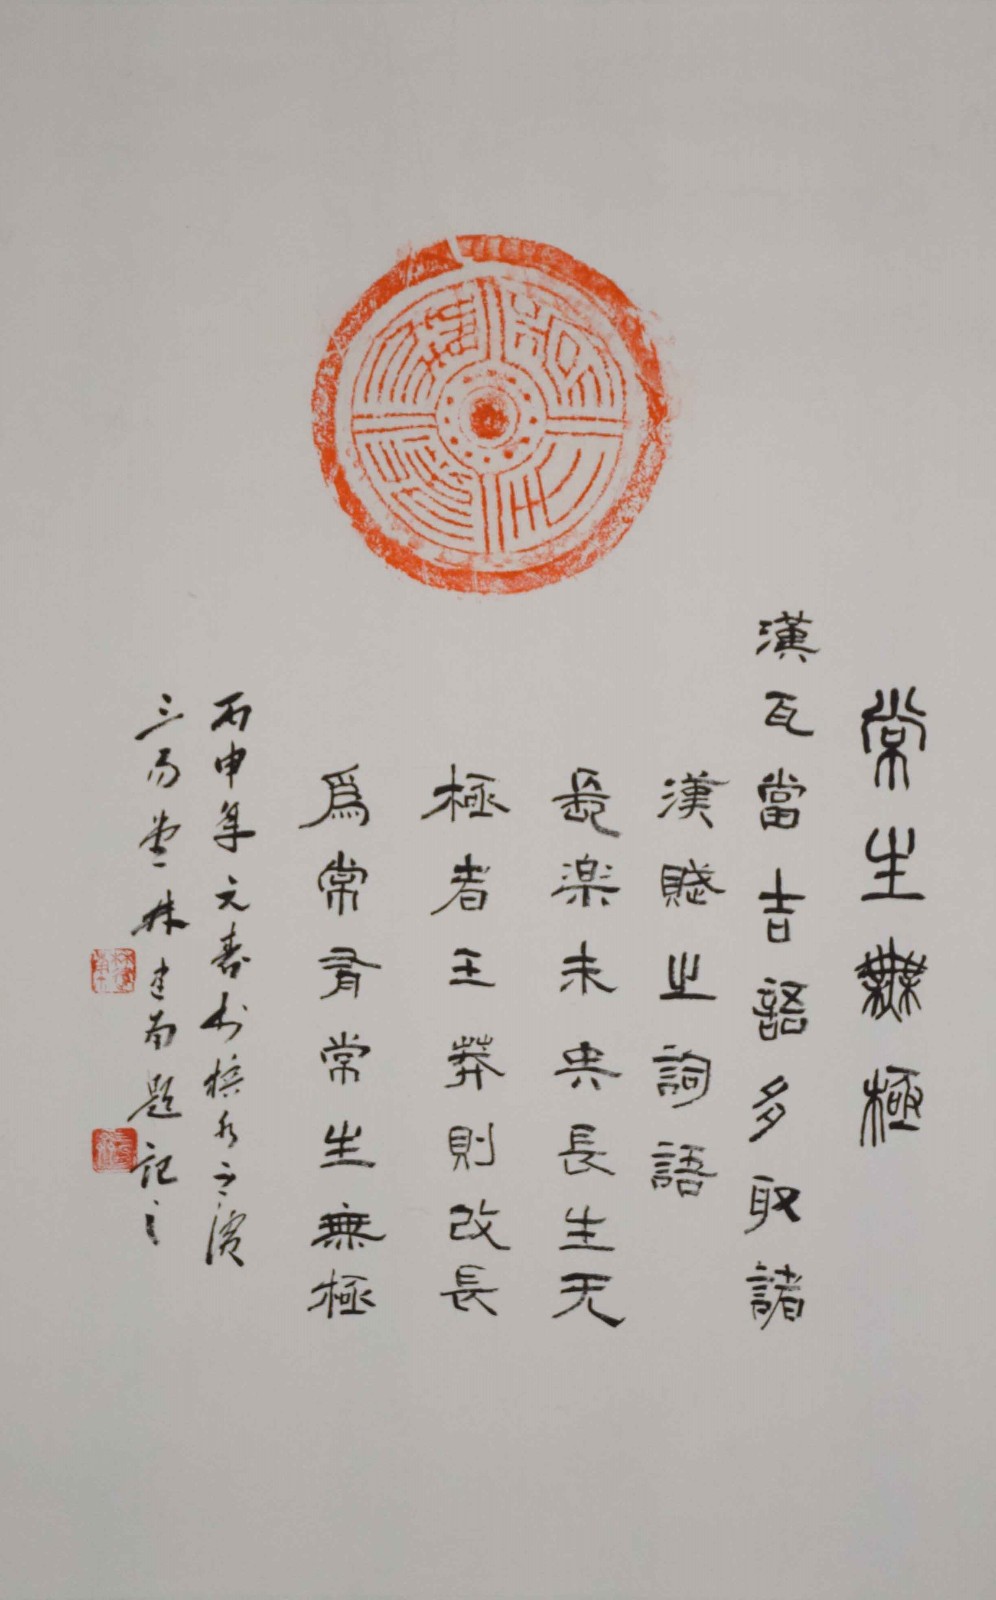 常生無極
漢瓦當吉語多取諸
漢賦之詞語
長楽未央長生无
極者王莽則改長
為常有常生無極
丙申年元春於檳水之濱
三易堂林建南題記之